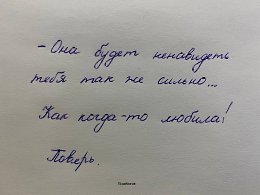 - Она будет ненавидеть
тебя так же сильно...
Как когда-то любила!
Поверь.